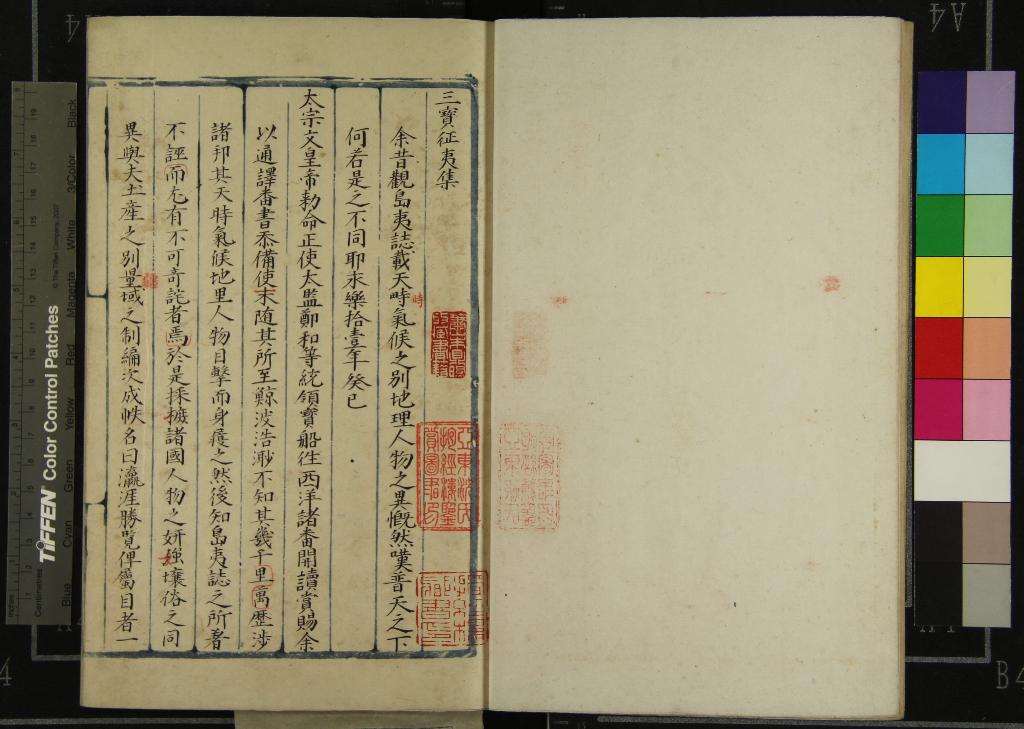 三寶征夷集
余昔觀島夷誌載天時氣候之别地理人物之異慨然嘆普天之下
時
何若是之不同耶永樂拾壹年癸巳
太宗文皇帝勅命正使太監鄭和等統領寶船徃西洋諸番開讀賞賜余
以通譯番書忝備使末随其所至鯨波浩渺不知其幾千里萬歷涉
諸邦其天時氣候地里人物目擊而身履之然後知島夷誌之所著
不誣而尢有不可竒詫者焉於是採摭諸國人物之妍強壤俗之同
異與夫土產之别疆域之制編次成帙名曰瀛涯勝覽俾屬目者一
亞東沈氏
抱經樓鑒
賞圖書印
TIFFEN Color Control Patches
© The Tiffen Company, 2007
Blue
Cyan
Green
Yellow
Red
Magenta
White
3/Color
Black
Inches
Centimetres
A4
B4